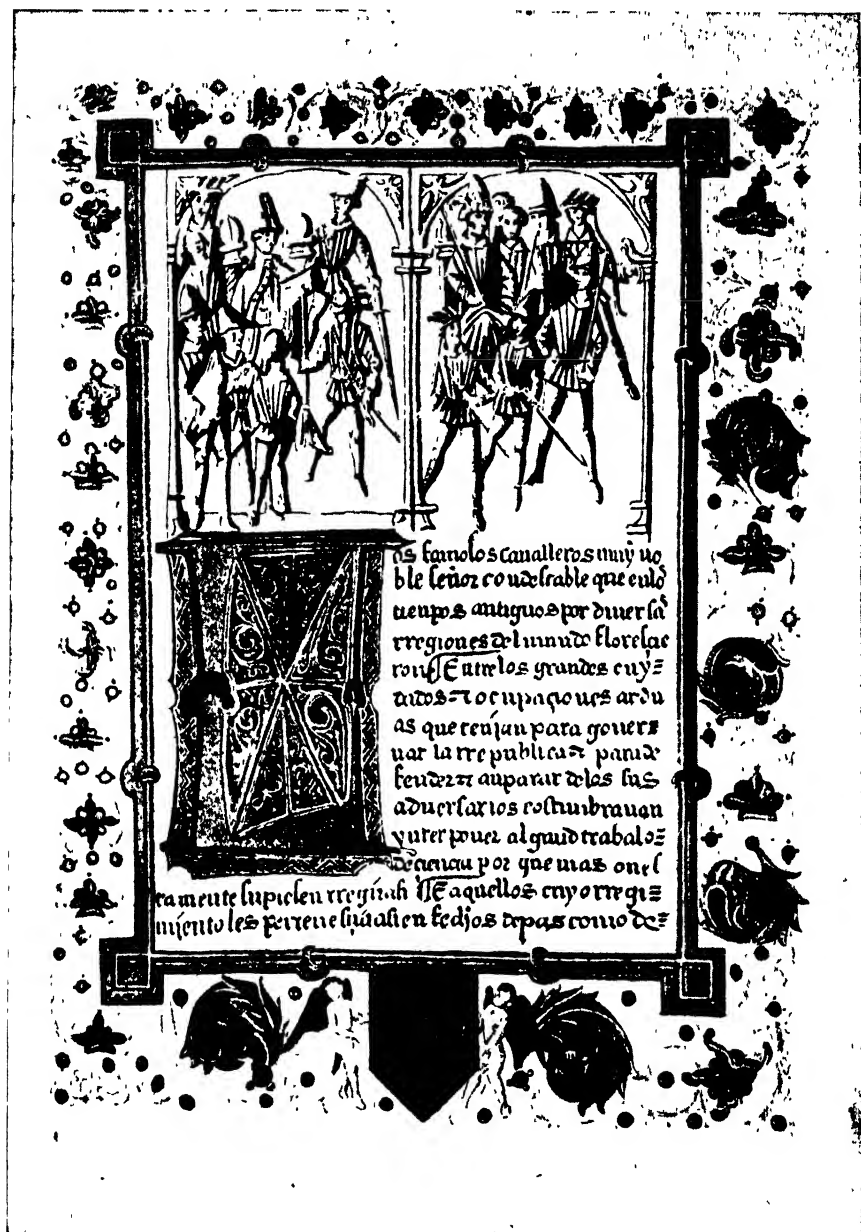 os famosos cavalleros muy no
ble señor condestable que en los
tienpos antiguos por diuersas
rregiones del mundo floresçie
ron. Entre los grandes cuy=
dados ⁊ ocupaçiones ardu
as que tenjan para gouer=
nar la rrepublica ⁊ para de
fender ⁊ anparar de los sus
aduersarios costunbrauan
ynterponer algund trabajo=
de çiençia por que mas ones
tamente supiesen rregir asi ⁊ a aquellos cuyo rregi=
mjento les perteneçia asi en fechos de pas como de=